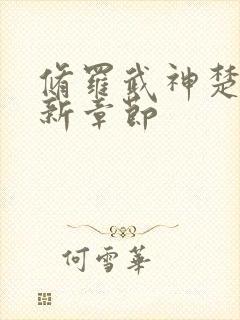 脩羅武神楚
新章節
何雪華